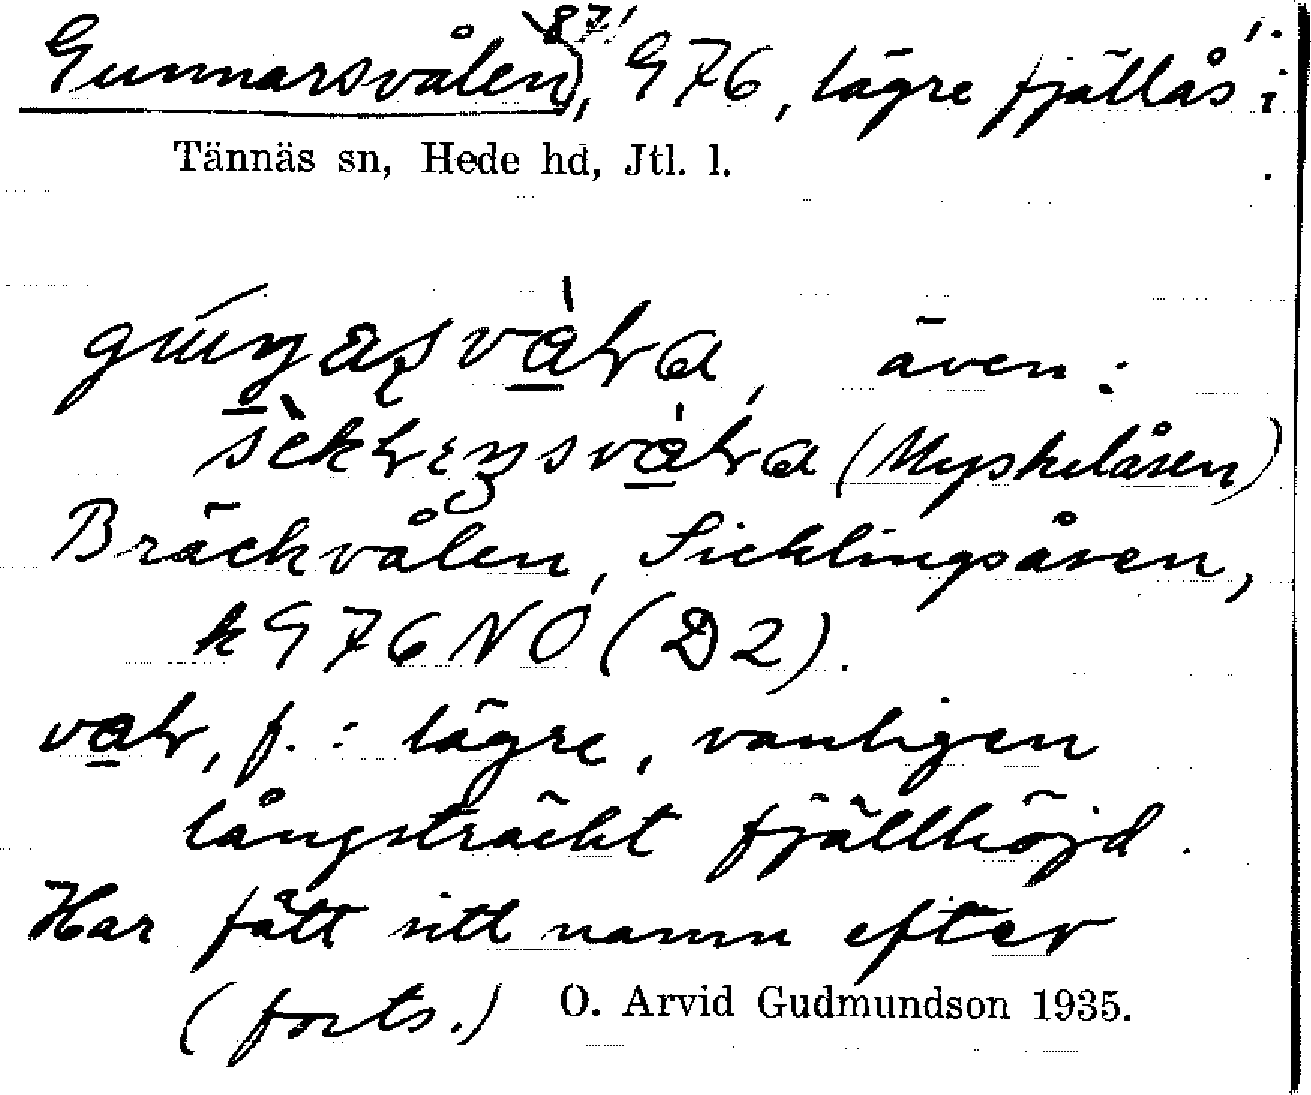 Gunnarsvålen, G76, lägre fjällås i
Tännäs sn, Hede hd, Jtl. l.
även:
(Myskelåsen)
Bräckvålen, Sicklingsåsen,
k G76 NO (D2).
f.: lägre, vanligen
långsträckt fjällhöjd.
Har fått sitt namn efter
(forts.) O. Arvid Gudmundson 1935.